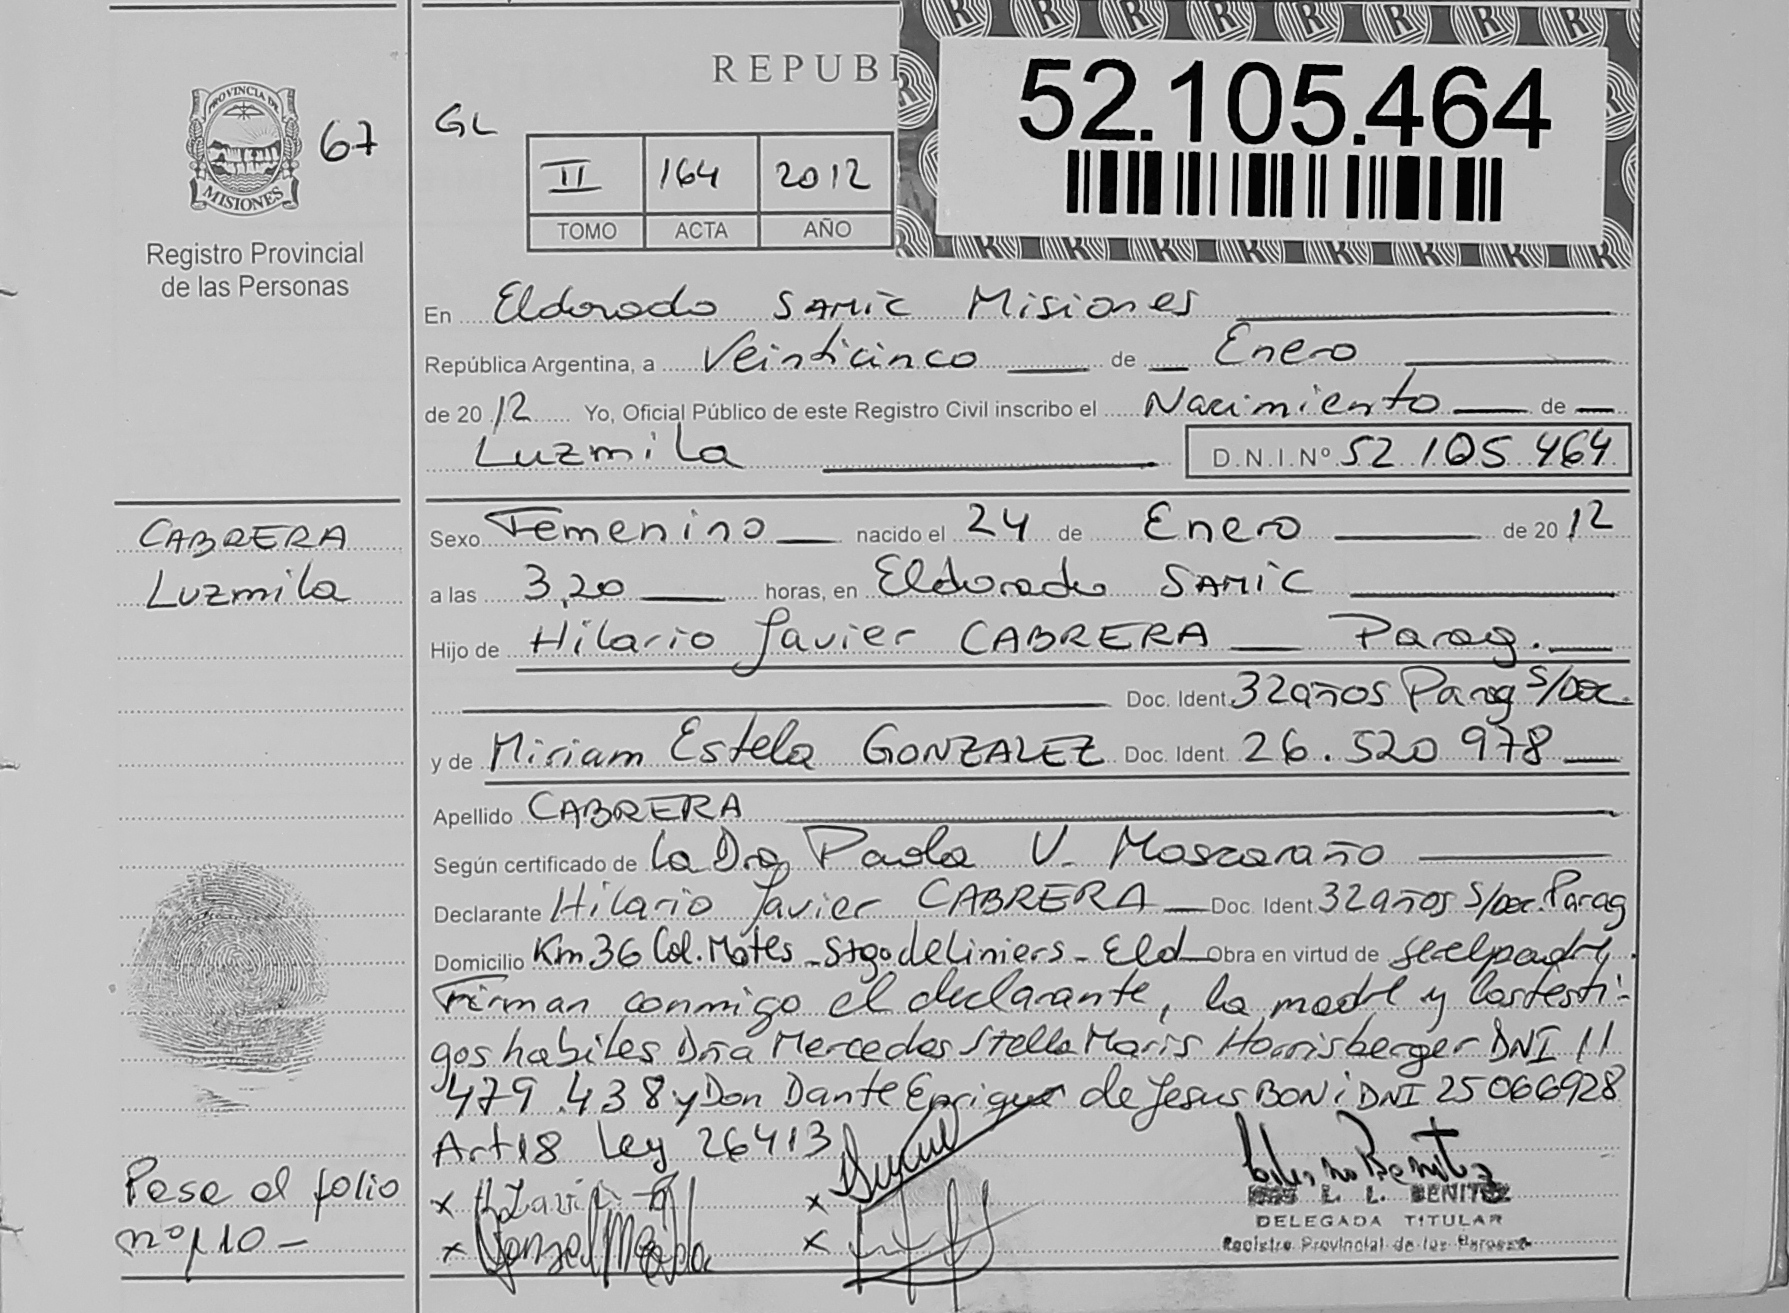 REPUBI
52.105.464
PROVINCIA DE
MISIONES
67
GL
II 164 2012
TOMO ACTA AÑO
Registro Provincial
de las Personas
En Eldorado SAMIC Misiones
República Argentina, a Veinticinco de Enero
de 2012 Yo, Oficial Público de este Registro Civil inscribo el Nacimiento de
Luzmila D.N.I.Nº 52.105.464
CABRERA
Luzmila
Sexo Femenino nacido el 24 de Enero de 2012
a las 3,20 horas, en Eldorado SAMIC
Hijo de Hilario Javier CABRERA Parag.
Doc. Ident. 32años Parag S/Doc.
y de Miriam Estela GONZALEZ Doc. Ident. 26.520 978
Apellido CABRERA
Según certificado de la Dra Paola V. Moscaraño
Declarante Hilario Javier CABRERA Doc. Ident. 32años S/Doc. Parag
Domicilio Km 36 Col. Motes - Stgo de Liniers - Eld Obra en virtud de ser el padre,
Firman conmigo el declarante, la madre y los testi-
gos habiles Dña Mercedes Stella Maris Horrisberger DNI 11
479.438 y Don Dante Enrique de Jesus BONI DNI 25066928
Art 18 Ley 26413
Pase al folio
nº 110 -
L. L. BENITEZ
DELEGADA TITULAR
Registro Provincial de las Personas